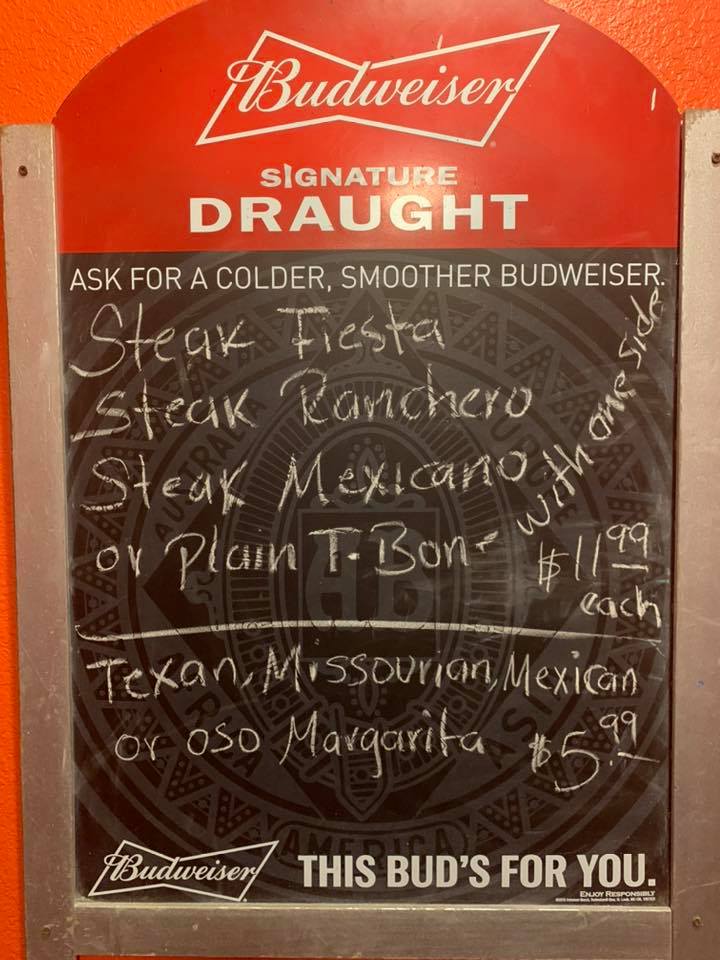 Budweiser
SIGNATURE
DRAUGHT
ASK FOR A COLDER, SMOOTHER BUDWEISER.
Steak Fiesta
Steak Ranchero
Steak Mexicano
or Plain T-Bone
with one side
$11.99
each
Texan, Missourian, Mexican
or oso Margarita $5.99
AUSTRALIA
AMERICA
ASIA
AB
Budweiser
THIS BUD'S FOR YOU.
ENJOY RESPONSIBLY